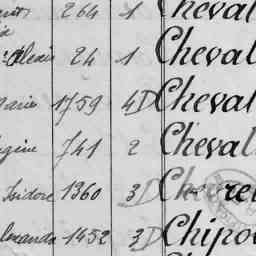 264 1 Cheval
Alexis 24 1 Cheval
Marie 1759 4D Cheval
Eugène 741 2 Cheval
Isidore 1360 3D Chevre
Amanda 1452 3D Chipo